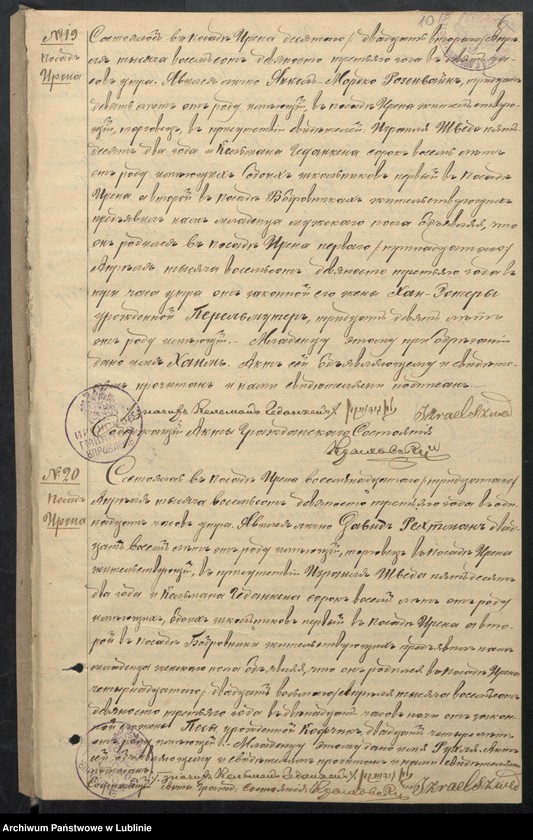 10
№ 19
Посадъ
Ирена
Состоялось въ посадѣ Ирена десятаго / двадцать втораго / Апрѣ-
ля тысяча восемьсотъ девяносто третьяго года въ
совъ утра. Явился лично Мордко Розенвайнъ, тридцати
девяти лѣтъ отъ роду имѣющій, въ посадѣ Ирена жительствую-
щій, торговецъ, въ присутствіи свидѣтелей: Израиля Шведа пять-
десятъ два года и Кельмана Геданкена сорокъ восемь лѣтъ
отъ роду имѣющихъ, обоихъ школьниковъ первый въ посадѣ
Ирена а второй въ посадѣ Бобровникахъ жительствующихъ
предъявилъ намъ младенца мужескаго пола объявляя, что
онъ родился въ посадѣ Ирена перваго / тринадцатаго /
Апрѣля тысяча восемьсотъ девяносто третьяго года въ
три часа утра отъ законной его жены
урожденной Перельмутеръ, тридцать девять лѣтъ
отъ роду имѣющей. Младенцу этому при обрѣзаніи
дано имя Хаимъ. Актъ сей объявляющему и свидѣте-
лямъ прочитанъ и нами свидѣтелями подписанъ.
Кельманъ Геданкенъ Izrael Szwed
Содержащій Акты Гражданскаго Состоянія
№ 20
Посадъ
Ирена
Состоялось въ посадѣ Ирена восемнадцатаго / тридцатаго /
Апрѣля тысяча восемьсотъ девяносто третьяго года въ один-
надцать часовъ утра. Явился лично Давидъ Рехтманъ двад-
цать восемь лѣтъ отъ роду имѣющій, торговецъ въ посадѣ Ирена
жительствующій, въ присутствіи Израиля Шведа пятьдесятъ
два года и Кельмана Геданкена сорокъ восемь лѣтъ отъ роду
имѣющихъ, обоихъ школьниковъ первый въ посадѣ Ирена а вто-
рой въ посадѣ Бобровникахъ жительствующихъ предъявилъ намъ
младенца женскаго пола объявляя, что онъ родился въ посадѣ Ирена
четырнадцатаго / двадцать
девяносто третьяго года въ двѣнадцать часовъ ночи отъ закон-
ной его жены Песы урожденной двадцать четыре лѣтъ
отъ роду имѣющей. Младенцу этому дано имя Рухля. Актъ
сей объявляющему и свидѣтелямъ прочитанъ и нами свидѣтелями
подписанъ. Кельманъ Геданкенъ
Содержащій Акты Гражд. состоянія Izrael Szwed
Archiwum Państwowe w Lublinie